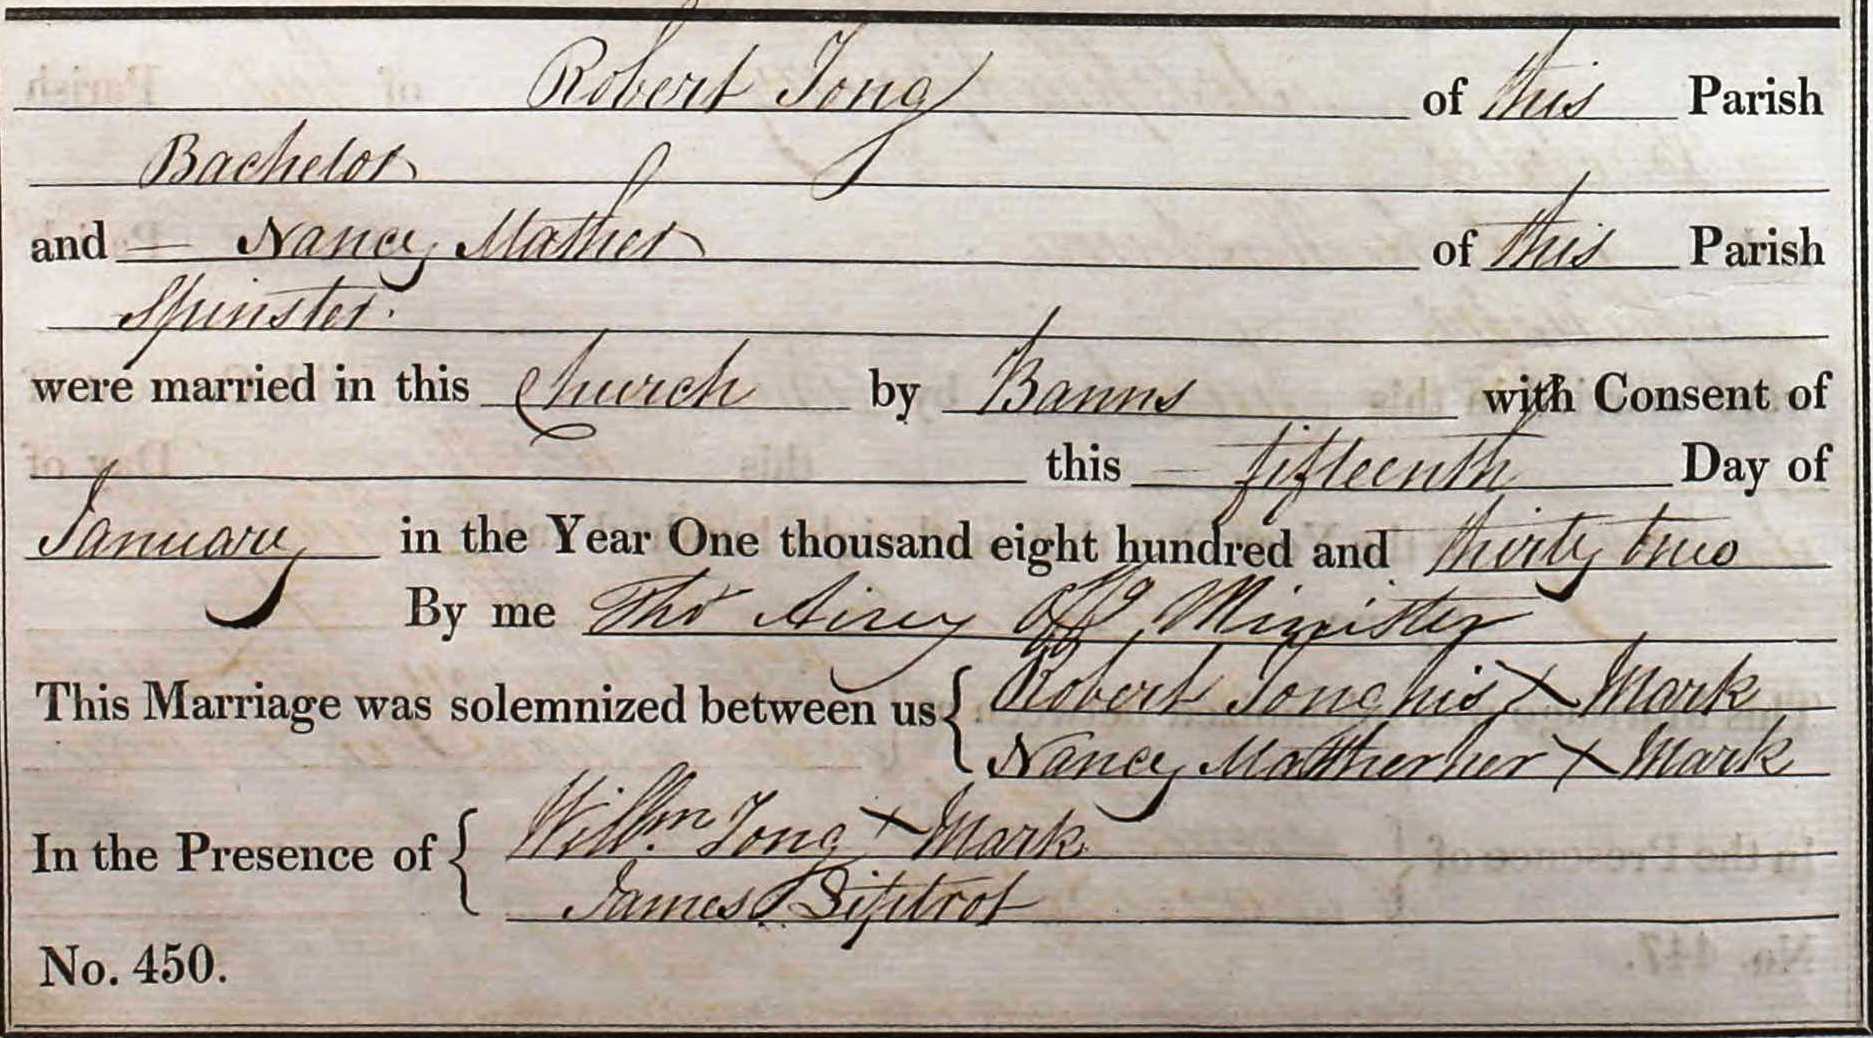 Robert Tong of this Parish
Bachelor
and — Nancy Mather of this Parish
Spinster.
were married in this Church by Banns with Consent of
this — fifteenth Day of
January in the Year One thousand eight hundred and thirty two
By me Thos Airey Offg Minister
This Marriage was solemnized between us { Robert Tong his X Mark
Nancy Mather her X Mark
In the Presence of { Willm. Tong X Mark
James Diptrot
No. 450.